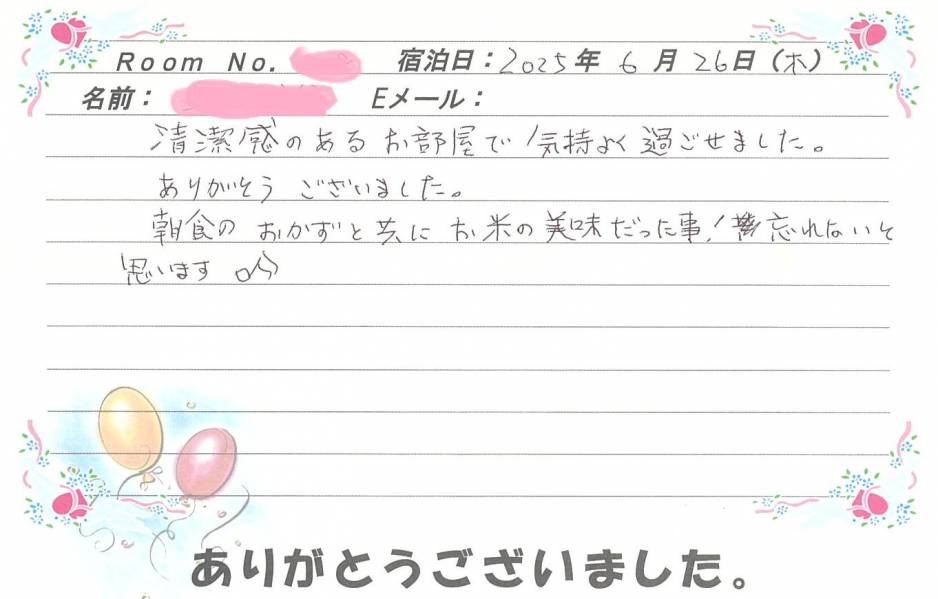 Room No. 宿泊日：2025年 6月 26日（木）
名前： Eメール：
清潔感のあるお部屋で気持よく過ごせました。
ありがとう ございました。
朝食の おかずと共に お米の美味だった事！忘れないと
思います
ありがとうございました。